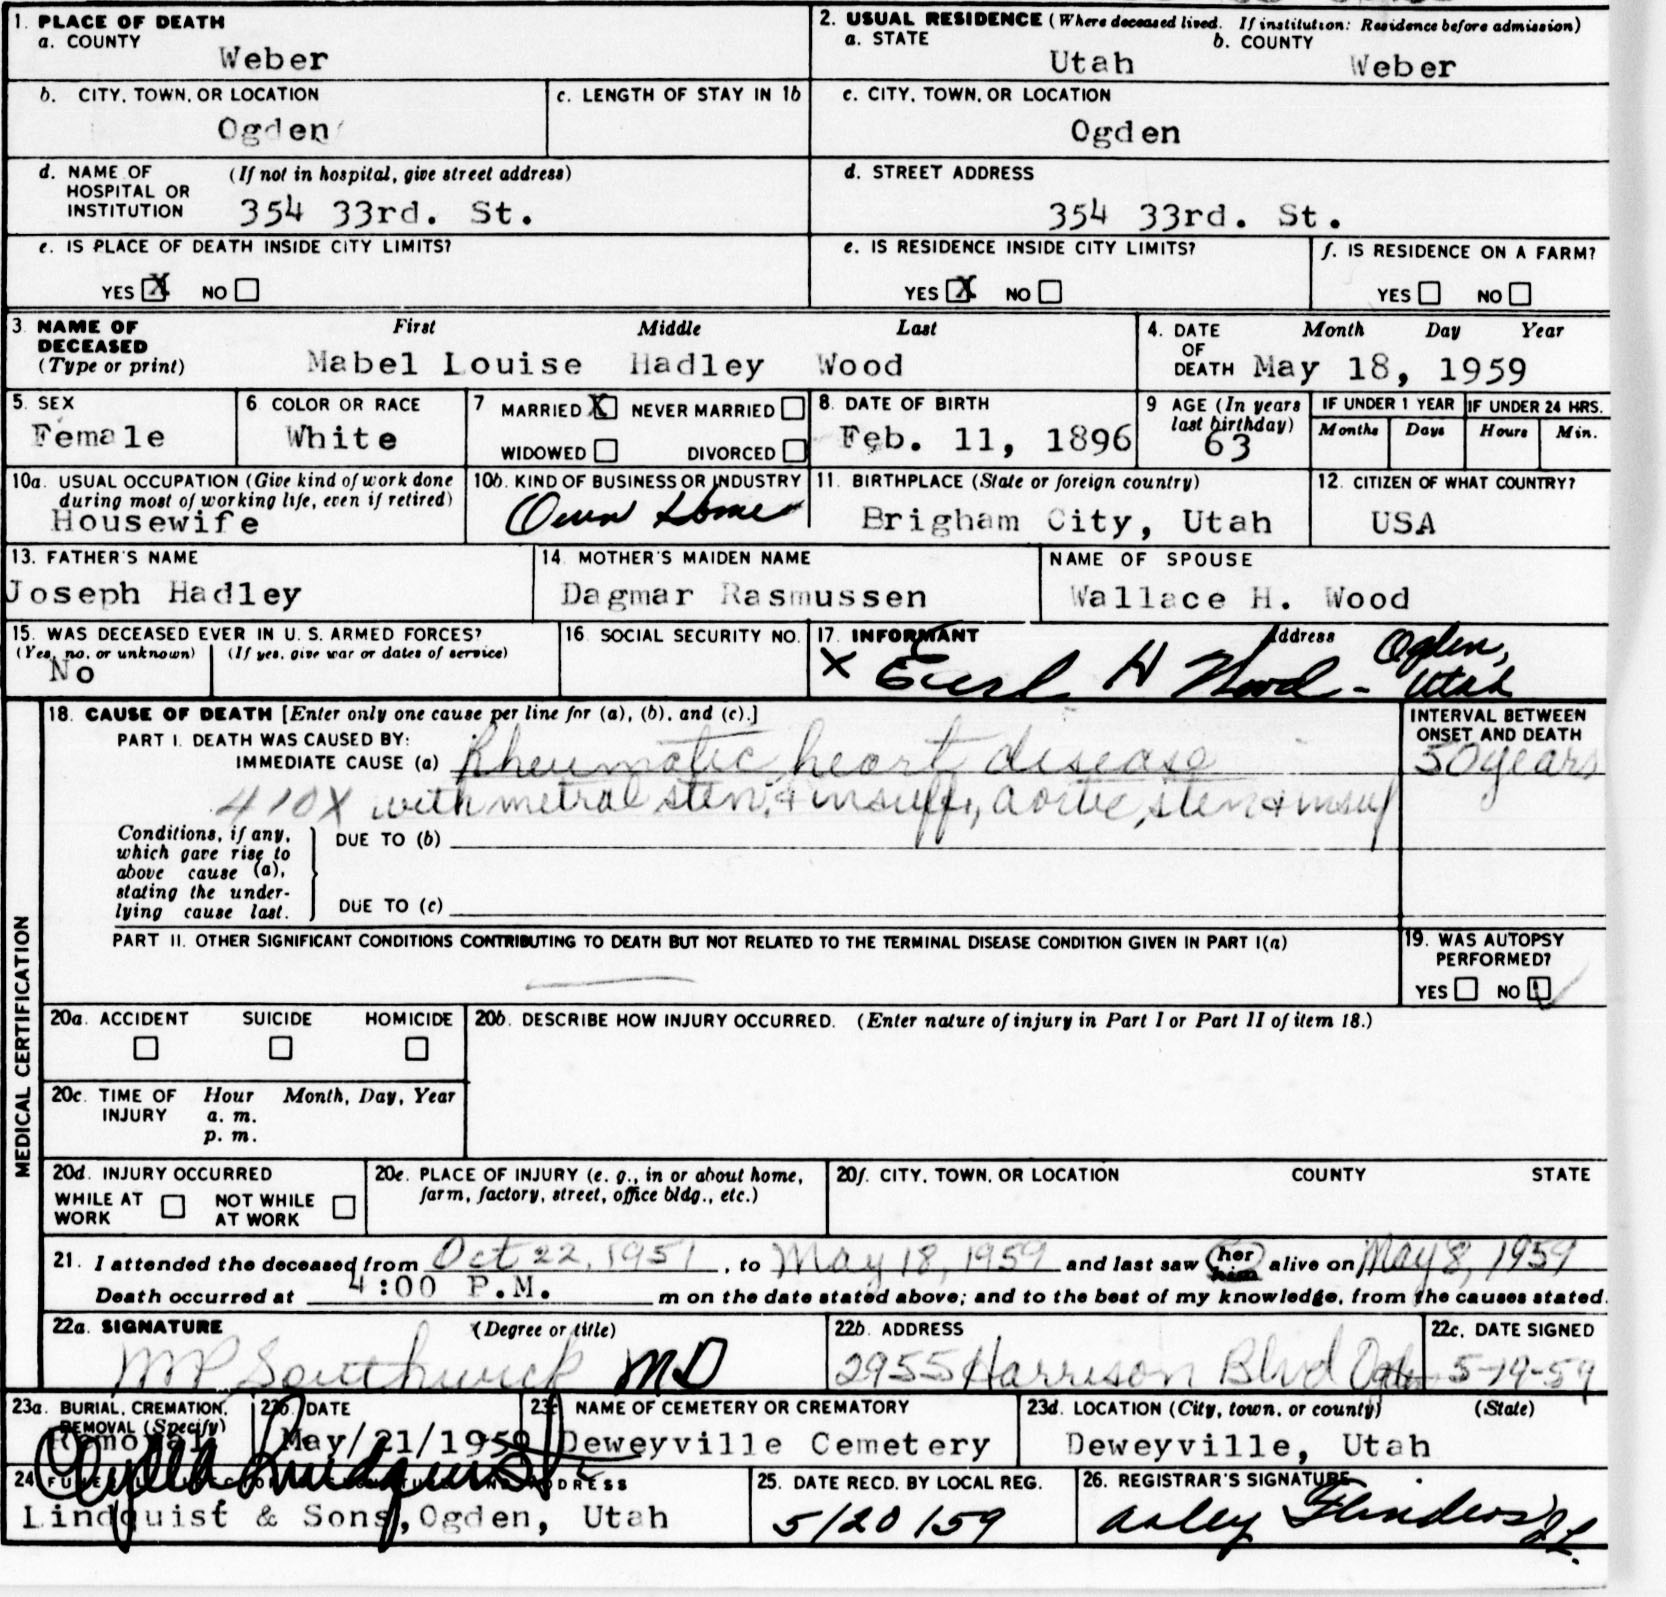 1. PLACE OF DEATH
a. COUNTY
Weber
2. USUAL RESIDENCE (Where deceased lived. If institution: Residence before admission)
a. STATE
Utah
b. COUNTY
Weber
b. CITY, TOWN, OR LOCATION
Ogden
c. LENGTH OF STAY IN 1b
c. CITY, TOWN, OR LOCATION
Ogden
d. NAME OF HOSPITAL OR INSTITUTION (If not in hospital, give street address)
354 33rd. St.
d. STREET ADDRESS
354 33rd. St.
e. IS PLACE OF DEATH INSIDE CITY LIMITS?
YES X NO
e. IS RESIDENCE INSIDE CITY LIMITS?
YES X NO
f. IS RESIDENCE ON A FARM?
YES NO
3. NAME OF DECEASED (Type or print)
First Middle Last
Mabel Louise Hadley Wood
4. DATE OF DEATH Month Day Year
May 18, 1959
5. SEX
Female
6. COLOR OR RACE
White
7 MARRIED X NEVER MARRIED
WIDOWED DIVORCED
8. DATE OF BIRTH
Feb. 11, 1896
9 AGE (In years last birthday)
63
IF UNDER 1 YEAR IF UNDER 24 HRS.
Months Days Hours Min.
10a. USUAL OCCUPATION (Give kind of work done during most of working life, even if retired)
Housewife
10b. KIND OF BUSINESS OR INDUSTRY
Own Home
11. BIRTHPLACE (State or foreign country)
Brigham City, Utah
12. CITIZEN OF WHAT COUNTRY?
USA
13. FATHER'S NAME
Joseph Hadley
14. MOTHER'S MAIDEN NAME
Dagmar Rasmussen
NAME OF SPOUSE
Wallace H. Wood
15. WAS DECEASED EVER IN U. S. ARMED FORCES?
(Yes, no, or unknown) (If yes, give war or dates of service)
No
16. SOCIAL SECURITY NO.
17. INFORMANT Address
X Earl H Wood - Ogden, Utah
MEDICAL CERTIFICATION
18. CAUSE OF DEATH [Enter only one cause per line for (a), (b), and (c).]
INTERVAL BETWEEN ONSET AND DEATH
PART I. DEATH WAS CAUSED BY:
IMMEDIATE CAUSE (a) Rheumatic heart disease
50 years
410X with metral sten. & insuff, aortic sten & insuf
Conditions, if any, which gave rise to above cause (a), stating the underlying cause last.
DUE TO (b)
DUE TO (c)
PART II. OTHER SIGNIFICANT CONDITIONS CONTRIBUTING TO DEATH BUT NOT RELATED TO THE TERMINAL DISEASE CONDITION GIVEN IN PART I(a)
19. WAS AUTOPSY PERFORMED?
YES NO ✓
20a. ACCIDENT SUICIDE HOMICIDE
20b. DESCRIBE HOW INJURY OCCURRED. (Enter nature of injury in Part I or Part II of item 18.)
20c. TIME OF INJURY Hour Month, Day, Year
a. m.
p. m.
20d. INJURY OCCURRED
WHILE AT WORK NOT WHILE AT WORK
20e. PLACE OF INJURY (e. g., in or about home, farm, factory, street, office bldg., etc.)
20f. CITY, TOWN, OR LOCATION COUNTY STATE
21. I attended the deceased from Oct 22, 1951, to May 18, 1959 and last saw her him alive on May 8, 1959
Death occurred at 4:00 P.M. m on the date stated above; and to the best of my knowledge, from the causes stated.
22a. SIGNATURE (Degree or title)
MP Southwick MD
22b. ADDRESS
2955 Harrison Blvd Ogden
22c. DATE SIGNED
5-19-59
23a. BURIAL, CREMATION, REMOVAL (Specify)
Removal
23b. DATE
May/21/1959
23c. NAME OF CEMETERY OR CREMATORY
Deweyville Cemetery
23d. LOCATION (City, town, or county) (State)
Deweyville, Utah
24. FUNERAL DIRECTOR'S SIGNATURE AND ADDRESS
Lindquist & Sons, Ogden, Utah
25. DATE RECD. BY LOCAL REG.
5/20/59
26. REGISTRAR'S SIGNATURE